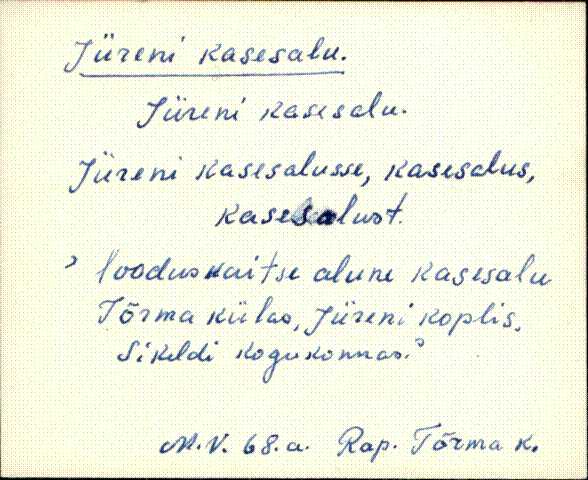 Jüreni kasesalu.
Jüreni kasesalu.
Jüreni kasesalusse, kasesalus,
kasesalust.
> looduskaitse alune kasesalu
Tõrma külas, Jüreni koplis,
Sikeldi kogukonnas.>
M.V. 68.a. Rap. Tõrma k.